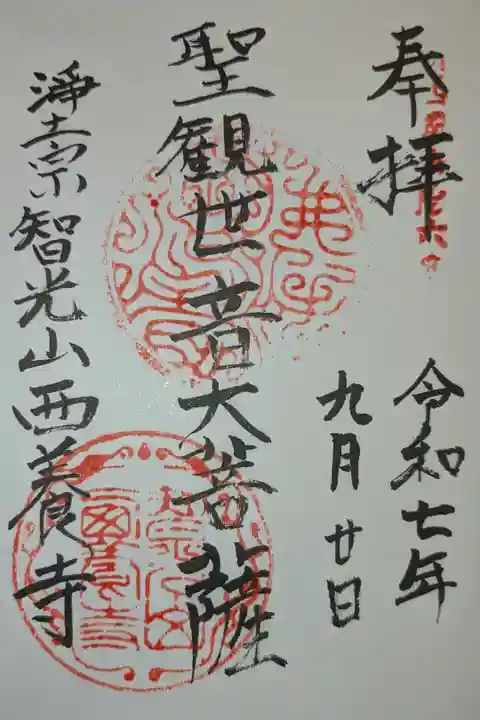 奉拝
令和七年
九月廿日
聖観世音大菩薩
淨土宗智光山西養寺